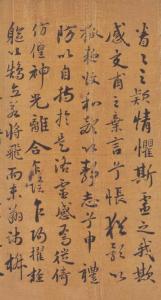 眷々之款情懼斯靈之我欺
感交甫之棄言兮悵猶豫以
狐疑收和顏以靜志兮申禮
防以自持於是洛靈感焉徙倚
彷徨神光離合乍陰乍陽擢輕
軀以鶴立若將飛而未翔踐椒